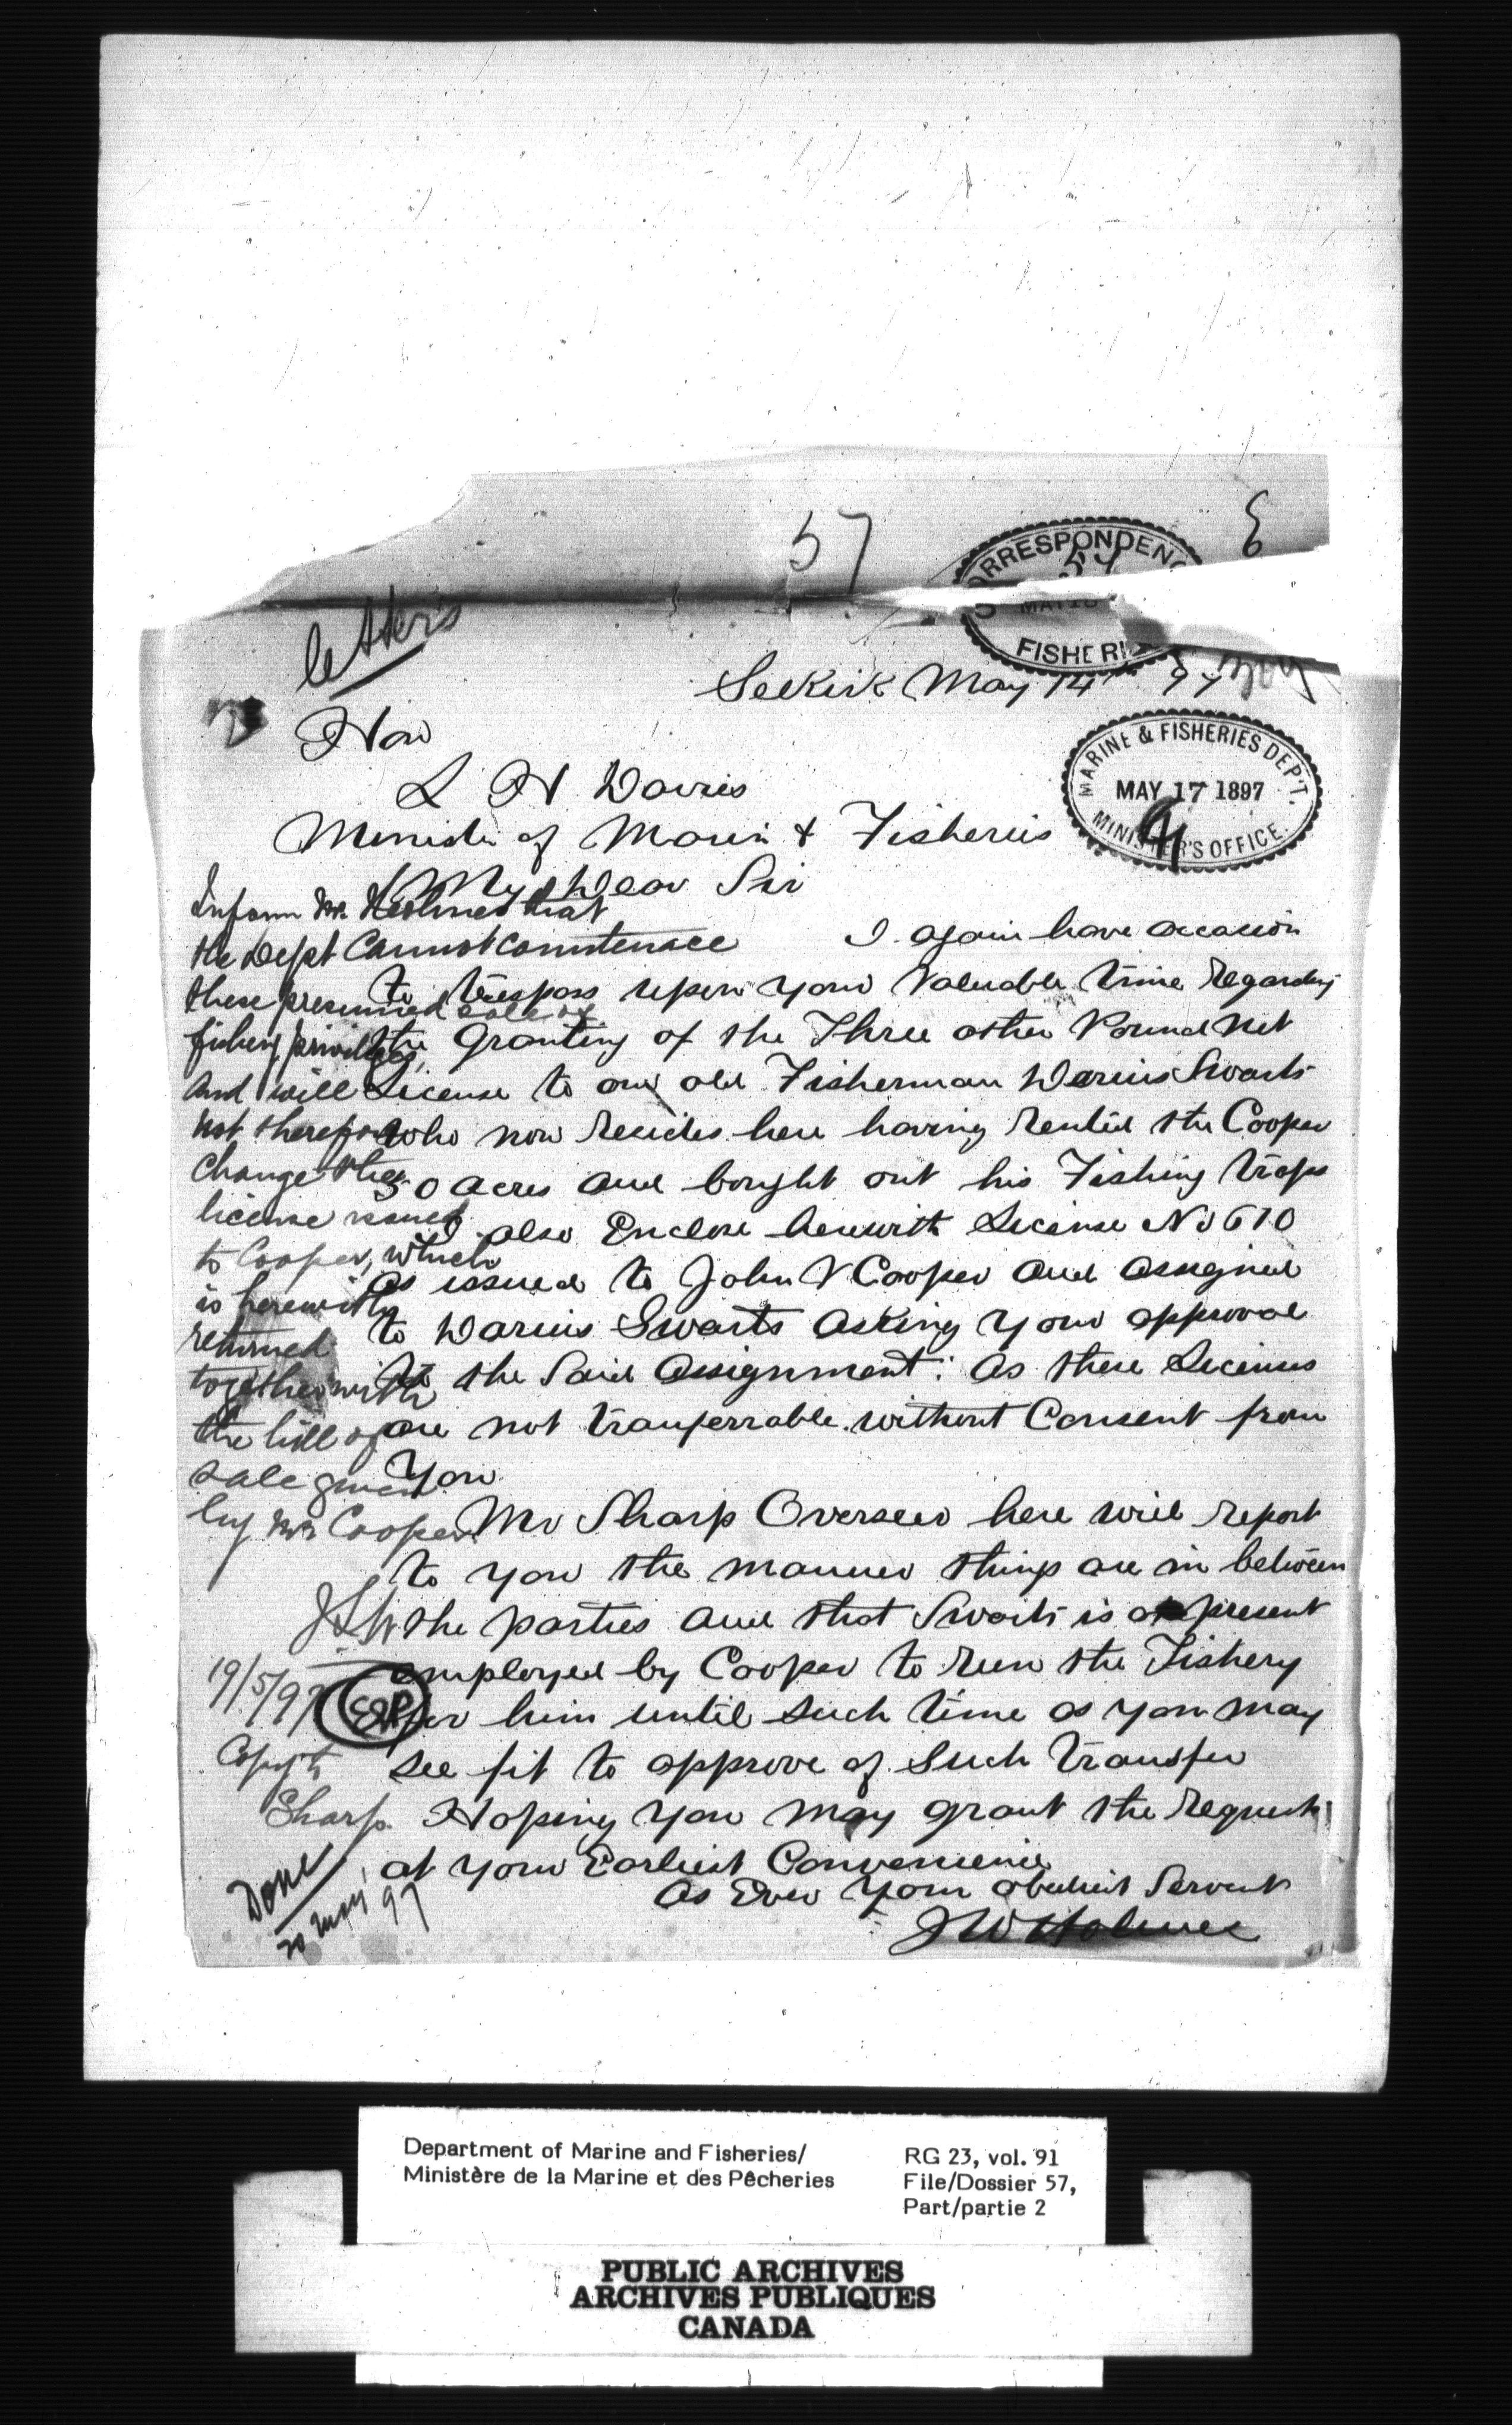 57
CORRESPONDENC
57
MAY 18
FISHERI
letters
Selkirk May 14th 97
Hon
L H Davies
MARINE & FISHERIES DEP'T.
MAY 17 1897
MINISTER'S OFFICE.
Minister of Marin & Fisheries
My Dear Sir
I again have occasion
to trespass upon your Valuable time regarding
the Granting of the Three other Pound Net
License to our old Fisherman Darius Swarts
who now resides here having rented the Cooper
50 acres and bought out his Fishing traps
I also Enclose herewith License No 610
as issued to John V Cooper and assigned
to Darius Swarts asking your approval
to the Said Assignment: as these Licenses
are not tranferrable without Consent from
You
Mr Sharp Overseer here will report
to you the manner things are in between
the parties and that Swarts is at present
employed by Cooper to run the Fishery
for him until such time as you may
see fit to approve of such transfer
Hoping you may grant the request
at your Earliest Convenience
As Ever Your obedient Servant
J W Holmes
Inform Mr Holmes that
the Dept Cannot Countenance
these presumed sale of
fishery privileges,
and will
not therefore
change the
license issued
to Cooper, which
is herewith
returned
together with
the bill of
sale given
by Mr Cooper
19/5/97
Copy to
Sharp
Done
20 May 97
Department of Marine and Fisheries/
Ministère de la Marine et des Pêcheries
RG 23, vol. 91
File/Dossier 57,
Part/partie 2
PUBLIC ARCHIVES
ARCHIVES PUBLIQUES
CANADA